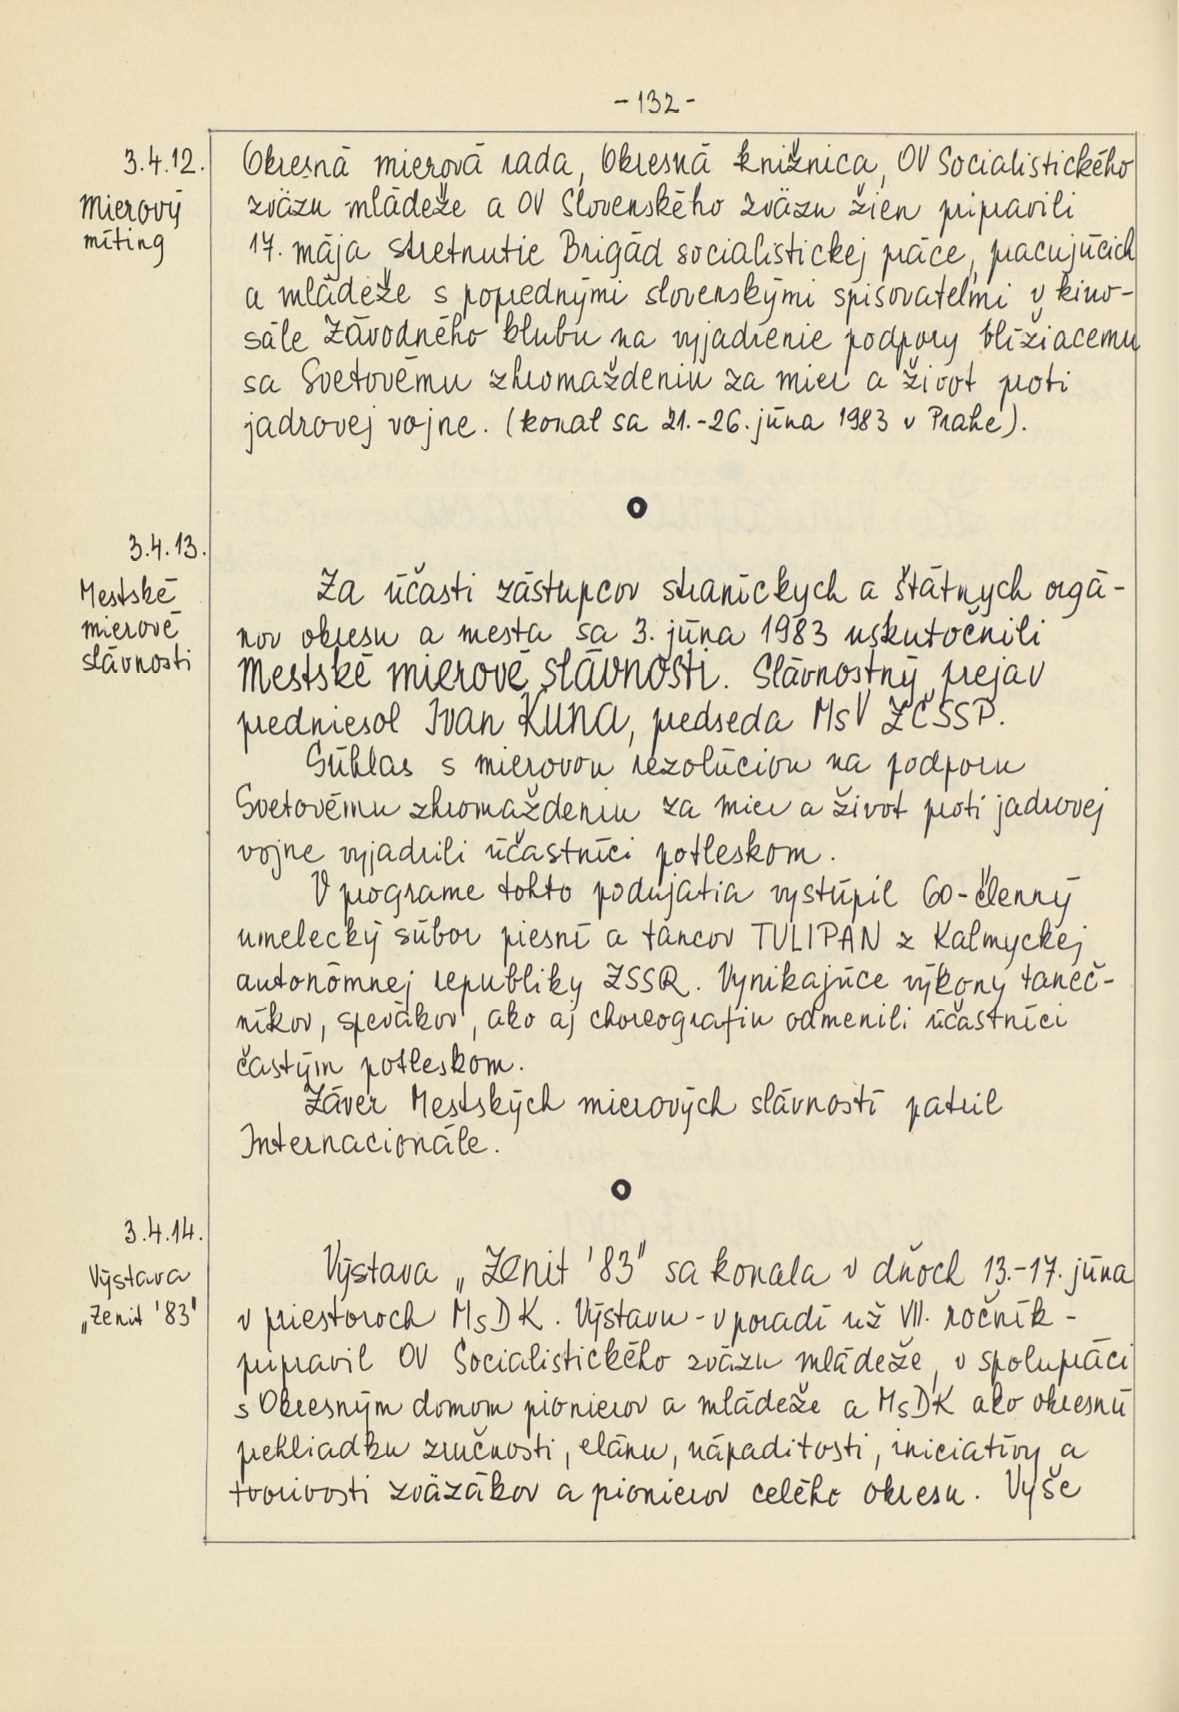 - 132 -
3.4.12.
Mierový
míting
Okresná mierová rada, Okresná knižnica, OV Socialistického
zväzu mládeže a OV Slovenského zväzu žien pripravili
17. mája stretnutie Brigád socialistickej práce, pracujúcich
a mládeže s poprednými slovenskými spisovateľmi v kino-
sále Závodného klubu na vyjadrenie podpory blížiacemu
sa Svetovému zhromaždeniu za mier a život proti
jadrovej vojne. (konal sa 21.-26. júna 1983 v Prahe).
3.4.13.
Mestské
mierové
slávnosti
Za účasti zástupcov straníckych a štátnych orgá-
nov okresu a mesta sa 3. júna 1983 uskutočnili
Mestské mierové slávnosti. Slávnostný prejav
predniesol Ivan KUNA, predseda MsV ZČSSP.
Súhlas s mierovou rezolúciou na podporu
Svetovému zhromaždeniu za mier a život proti jadrovej
vojne vyjadrili účastníci potleskom.
V programe tohto podujatia vystúpil 60-členný
umelecký súbor piesní a tancov TULIPAN z Kalmyckej
autonómnej republiky ZSSR. Vynikajúce výkony taneč-
níkov, spevákov, ako aj choreografiu odmenili účastníci
častým potleskom.
Záver Mestských mierových slávností patril
Internacionále.
3.4.14.
Výstava
„Zenit '83"
Výstava „Zenit '83" sa konala v dňoch 13.-17. júna
v priestoroch MsDK. Výstavu - v poradí už VII. ročník -
pripravil OV Socialistického zväzu mládeže, v spolupráci
s Okresným domom pionierov a mládeže a MsDK ako okresnú
prehliadku zručnosti, elánu, nápaditosti, iniciatívy a
tvorivosti zväzákov a pionierov celého okresu. Vyše